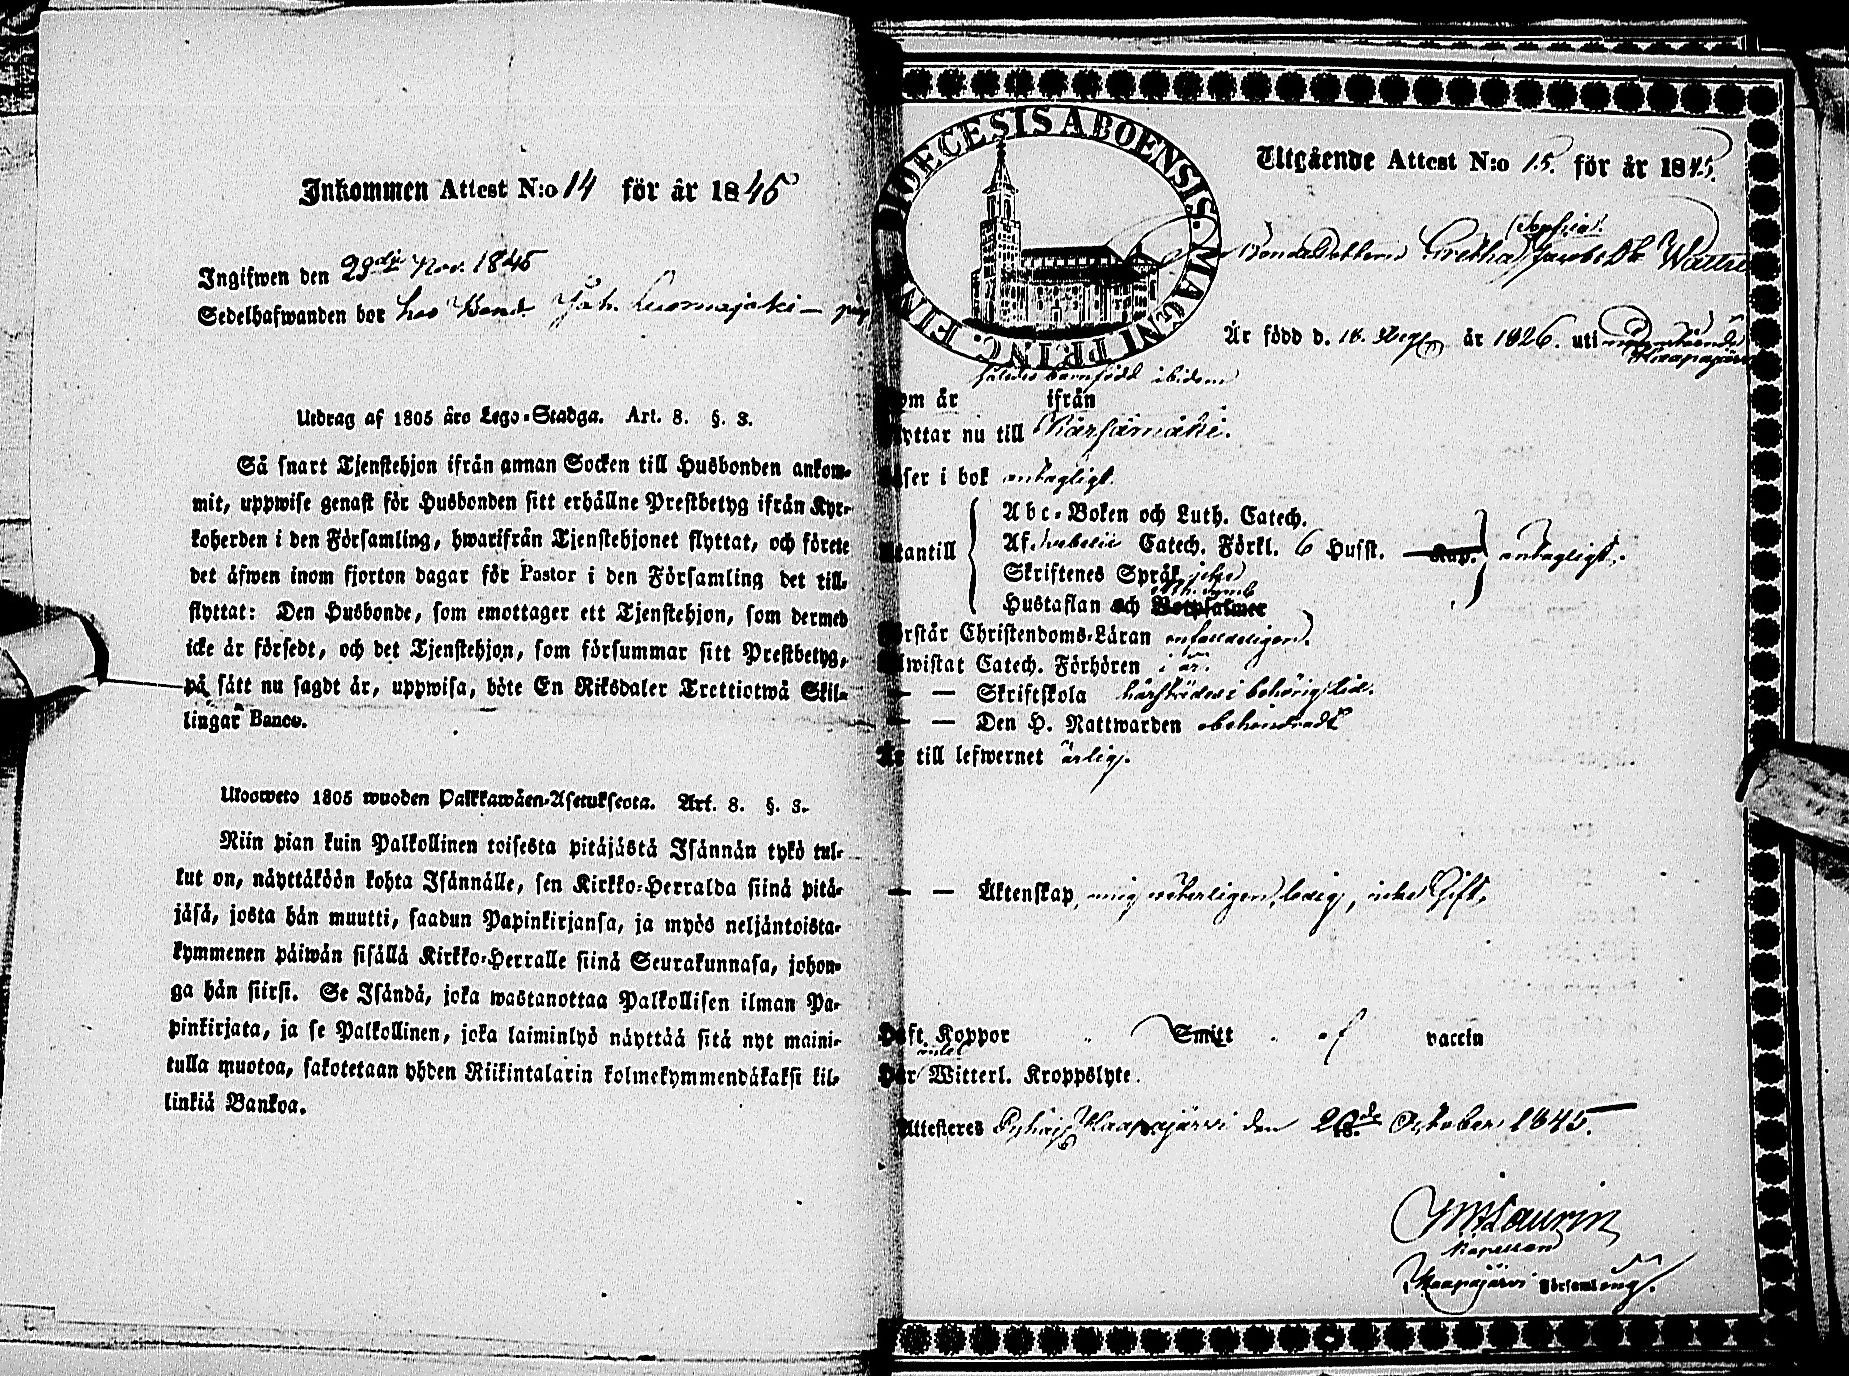 Inkommen Attest N:o 14 för år 1845
Ingifwen den 29de Nov. 1845
Sedelhafwanden bor hos Bond. Joh. Luomajoki —
Utdrag af 1805 års Lego-Stadga. Art. 8. §. 3.
Så snart Tjenstehjon ifrån annan Socken till Husbonden ankom-
mit, uppwise genast för Husbonden sitt erhållne Prestbetyg ifrån Kyr-
koherden i den Församling, hwarifrån Tjenstehjonet flyttat, och förete
det äfwen inom fjorton dagar för Pastor i den Församling det till-
flyttat: Den Husbonde, som emottager ett Tjenstehjon, som dermed
icke är försedt, och det Tjenstehjon, som försummar sitt Prestbetyg,
på sätt nu sagdt är, uppwisa, böte En Riksdaler Trettiotwå Skil-
lingar Banco.
Ulosweto 1805 wuoden Palkkawäen-Asetuksesta. Art. 8. §. 3.
Niin pian kuin Palkollinen toisesta pitäjästä Isännän tykö tul-
kut on, näyttäköön kohta Isännälle, sen Kirkko-Herralda siinä pitä-
jäsä, josta hän muutti, saadun Papinkirjansa, ja myös neljäntoista-
kymmenen päiwän sisällä Kirkko-Herralle siinä Seurakunnasa, johon-
ga hän siirsi. Se Isändä, joka wastanottaa Palkollisen ilman Pa-
pinkirjata, ja se Palkollinen, joka laiminlyö näyttää sitä nyt maini-
tulla muotoa, sakotetaan yhden Riikintalarin kolmekymmendäkaksi kil-
linkiä Bankoa.
DIOECESIS ABOENSIS MAGNI PRINC. FIN
Utgående Attest N:o 15. för år 1845.
Sophia
Bonde Dottern Gretha Jacobs Dr
Är född d. 18. år 1826. uti
Haapajärvi
barnfödd ibidem
om är ifrån
yttar nu till Kärsämäki.
ser i bok antagligt.
antill Abc-Boken och Luth. Catech.
Af Catech. Förkl. 6 Hufst. Kap. antagligt.
Skriftenes Språk
Symb.
Hustaflan och Botpsalmer
rstår Christendoms-Läran
wistat Catech. Förhören i år.
— — Skriftskola härstädes i behörig tid.
— — Den H. Nattwarden obehindradt
Är till lefwernet ärlig.
— — Äktenskap, mig veterligen, ledig, icke Gift.
Haft Koppor Smitt af vaccin
intet
Har Witterl. Kroppslyte.
Attesteres Pyhäj. Haapajärvi den 28de October 1845.
Laurin
Kapellan
Haapajärvi Församling.